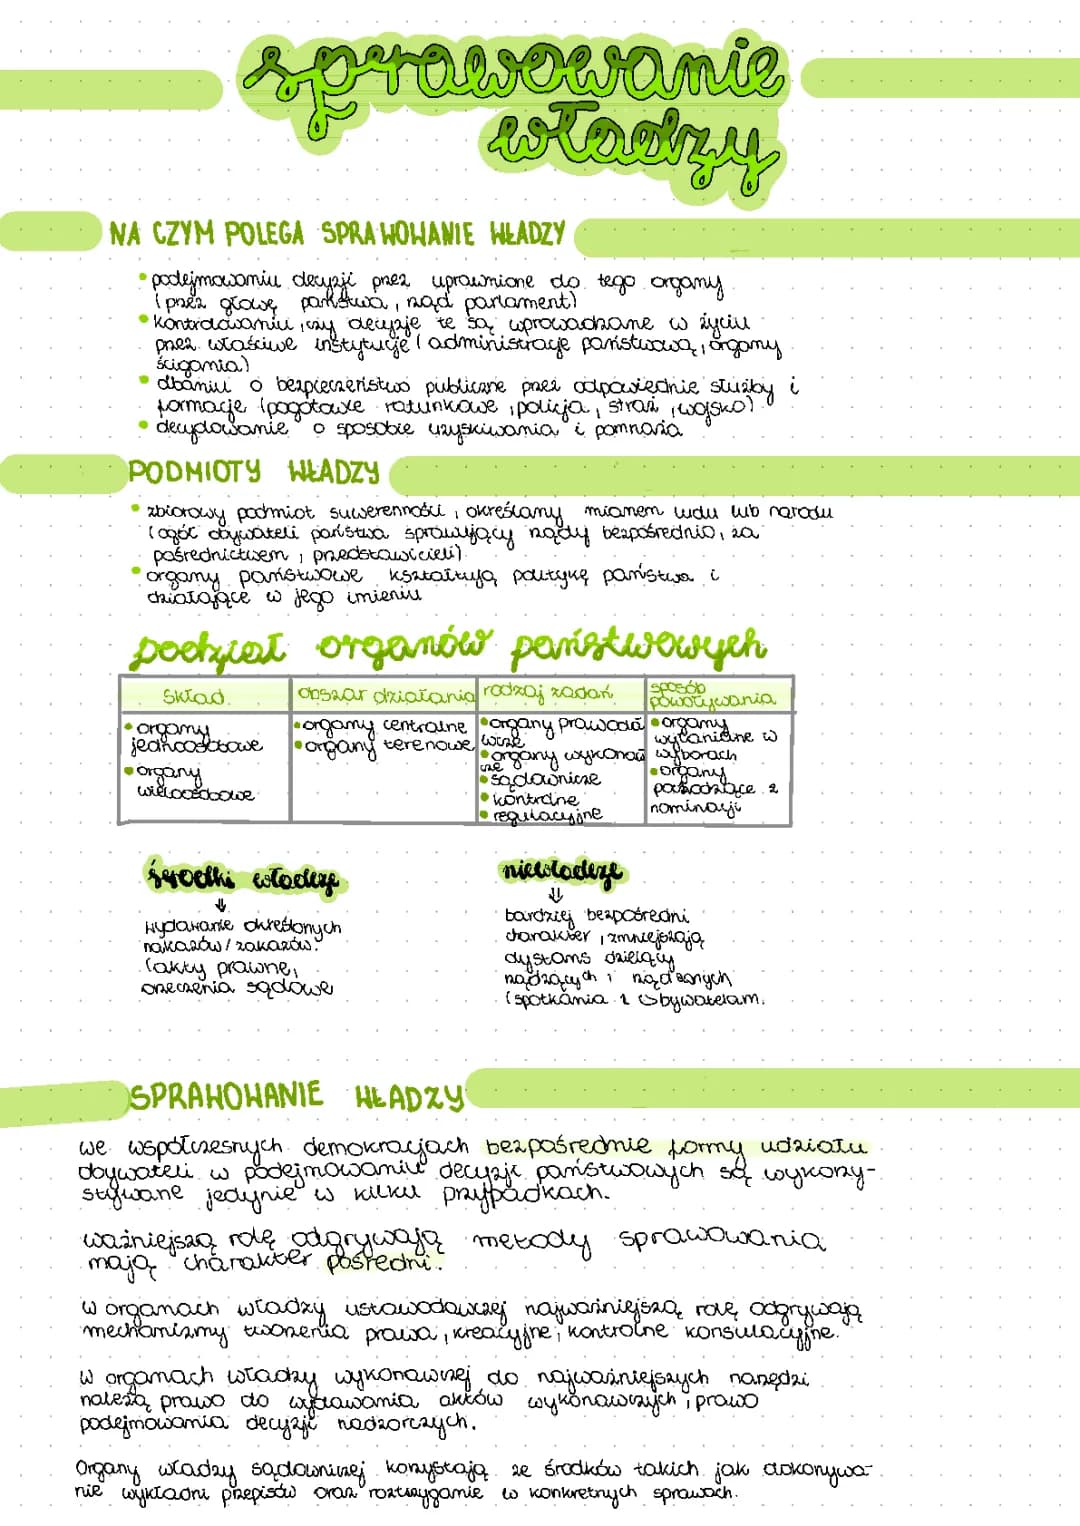 sprawowanie
władzy
NA CZYM POLEGA SPRAWOWANIE WŁADZY
• podejmowaniu decyzji przez uprawnione do tego organy
(przez głowę państwa, rząd parlament)
• kontrolowaniu, czy decyzje te są wprowadzane w życiu
przez właściwe instytucje (administracje państwową, organy
ścigania)
• dbaniu o bezpieczeństwo publiczne przez odpowiednie służby i
formacje (pogotowie ratunkowe, policja, straż, wojsko)
• decydowanie o sposobie uzyskiwania i pomnaża
PODMIOTY WŁADZY
• zbiorowy podmiot suwerenności, określany mianem ludu lub narodu
(ogół obywateli państwa sprawujący rządy bezpośrednio, za
pośrednictwem, przedstawicieli)
• organy państwowe kształtują politykę państwa i
działające w jego imieniu
podział organów państwowych
skład
obszar działania
rodzaj zadań
sposób
powoływania
• organy
jednoosobowe
• organy
wieloosobowe
• organy centralne
• organy terenowe
• organy prawoda
wcze
• organy wykonaw
cze
• sądownicze
• kontrolne
• regulacyjne
• organy
wyłaniane w
wyborach
• organy
pochodzące z
nominacji
środki władcze
⇓
wydawanie określonych
nakazów/zakazów.
(akty prawne,
orzeczenia sądowe
niewładcze
⇓
bardziej bezpośredni
charakter, zmniejszają
dystans dzielący
rządzących i rządzonych
(spotkania z obywatelam.
SPRAWOWANIE WŁADZY
we współczesnych demokracjach bezpośrednie formy udziału
obywateli w podejmowaniu decyzji państwowych są wykorzy-
stywane jedynie w kilku przypadkach.
ważniejszą rolę odgrywają metody sprawowania
mają charakter pośredni.
w organach władzy ustawodawczej najważniejszą rolę odgrywają
mechanizmy tworzenia prawa, kreacyjne, kontrolne konsulacyjne.
w organach władzy wykonawczej do najważniejszych narzędzi
należą prawo do wydawania aktów wykonawczych, prawo
podejmowania decyzji nadzorczych.
Organy władzy sądowniczej korzystają ze środków takich jak dokonywa-
nie wykładni przepisów oraz roztrzyganie w konkretnych sprawach.